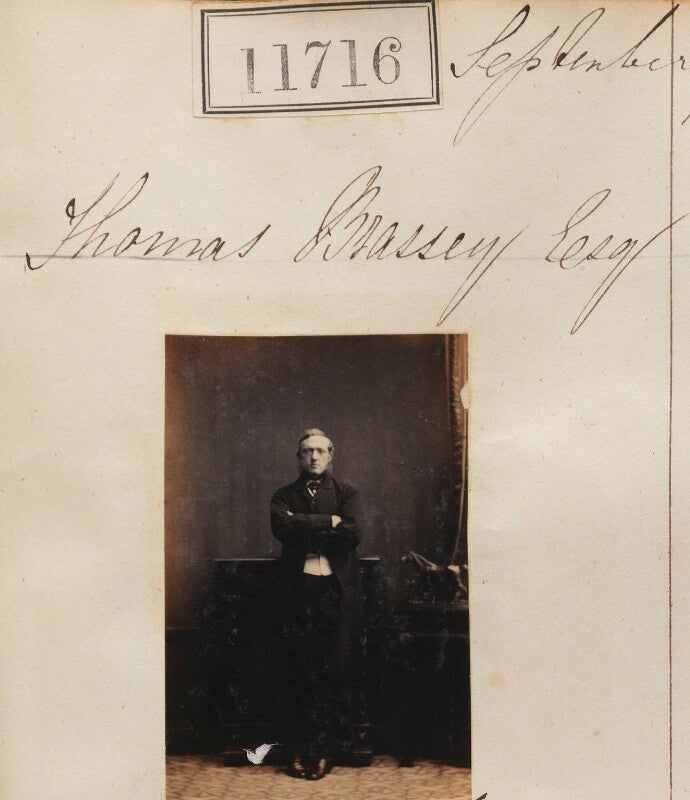 11716
September
Thomas Brassey Esq